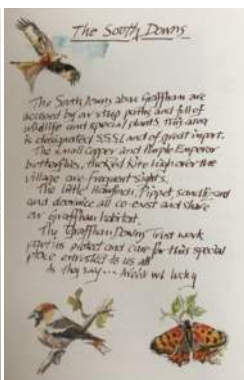 The South Downs
The South Downs above Graffham are
accessed by our steep paths and full of
wildlife and special plants. This area
is designated S.S.S.I. and of great import.
The Small Copper and Purple Emperor
butterflies, the Red Kite high over the
village are frequent sights.
The little Hawfinch, Pippet, sand lizard
and dormice all co-exist and share
our Graffham habitat.
The Graffham Downs Trust work
parties protect and care for this special
place entrusted to us all
As they say... Aren't we lucky